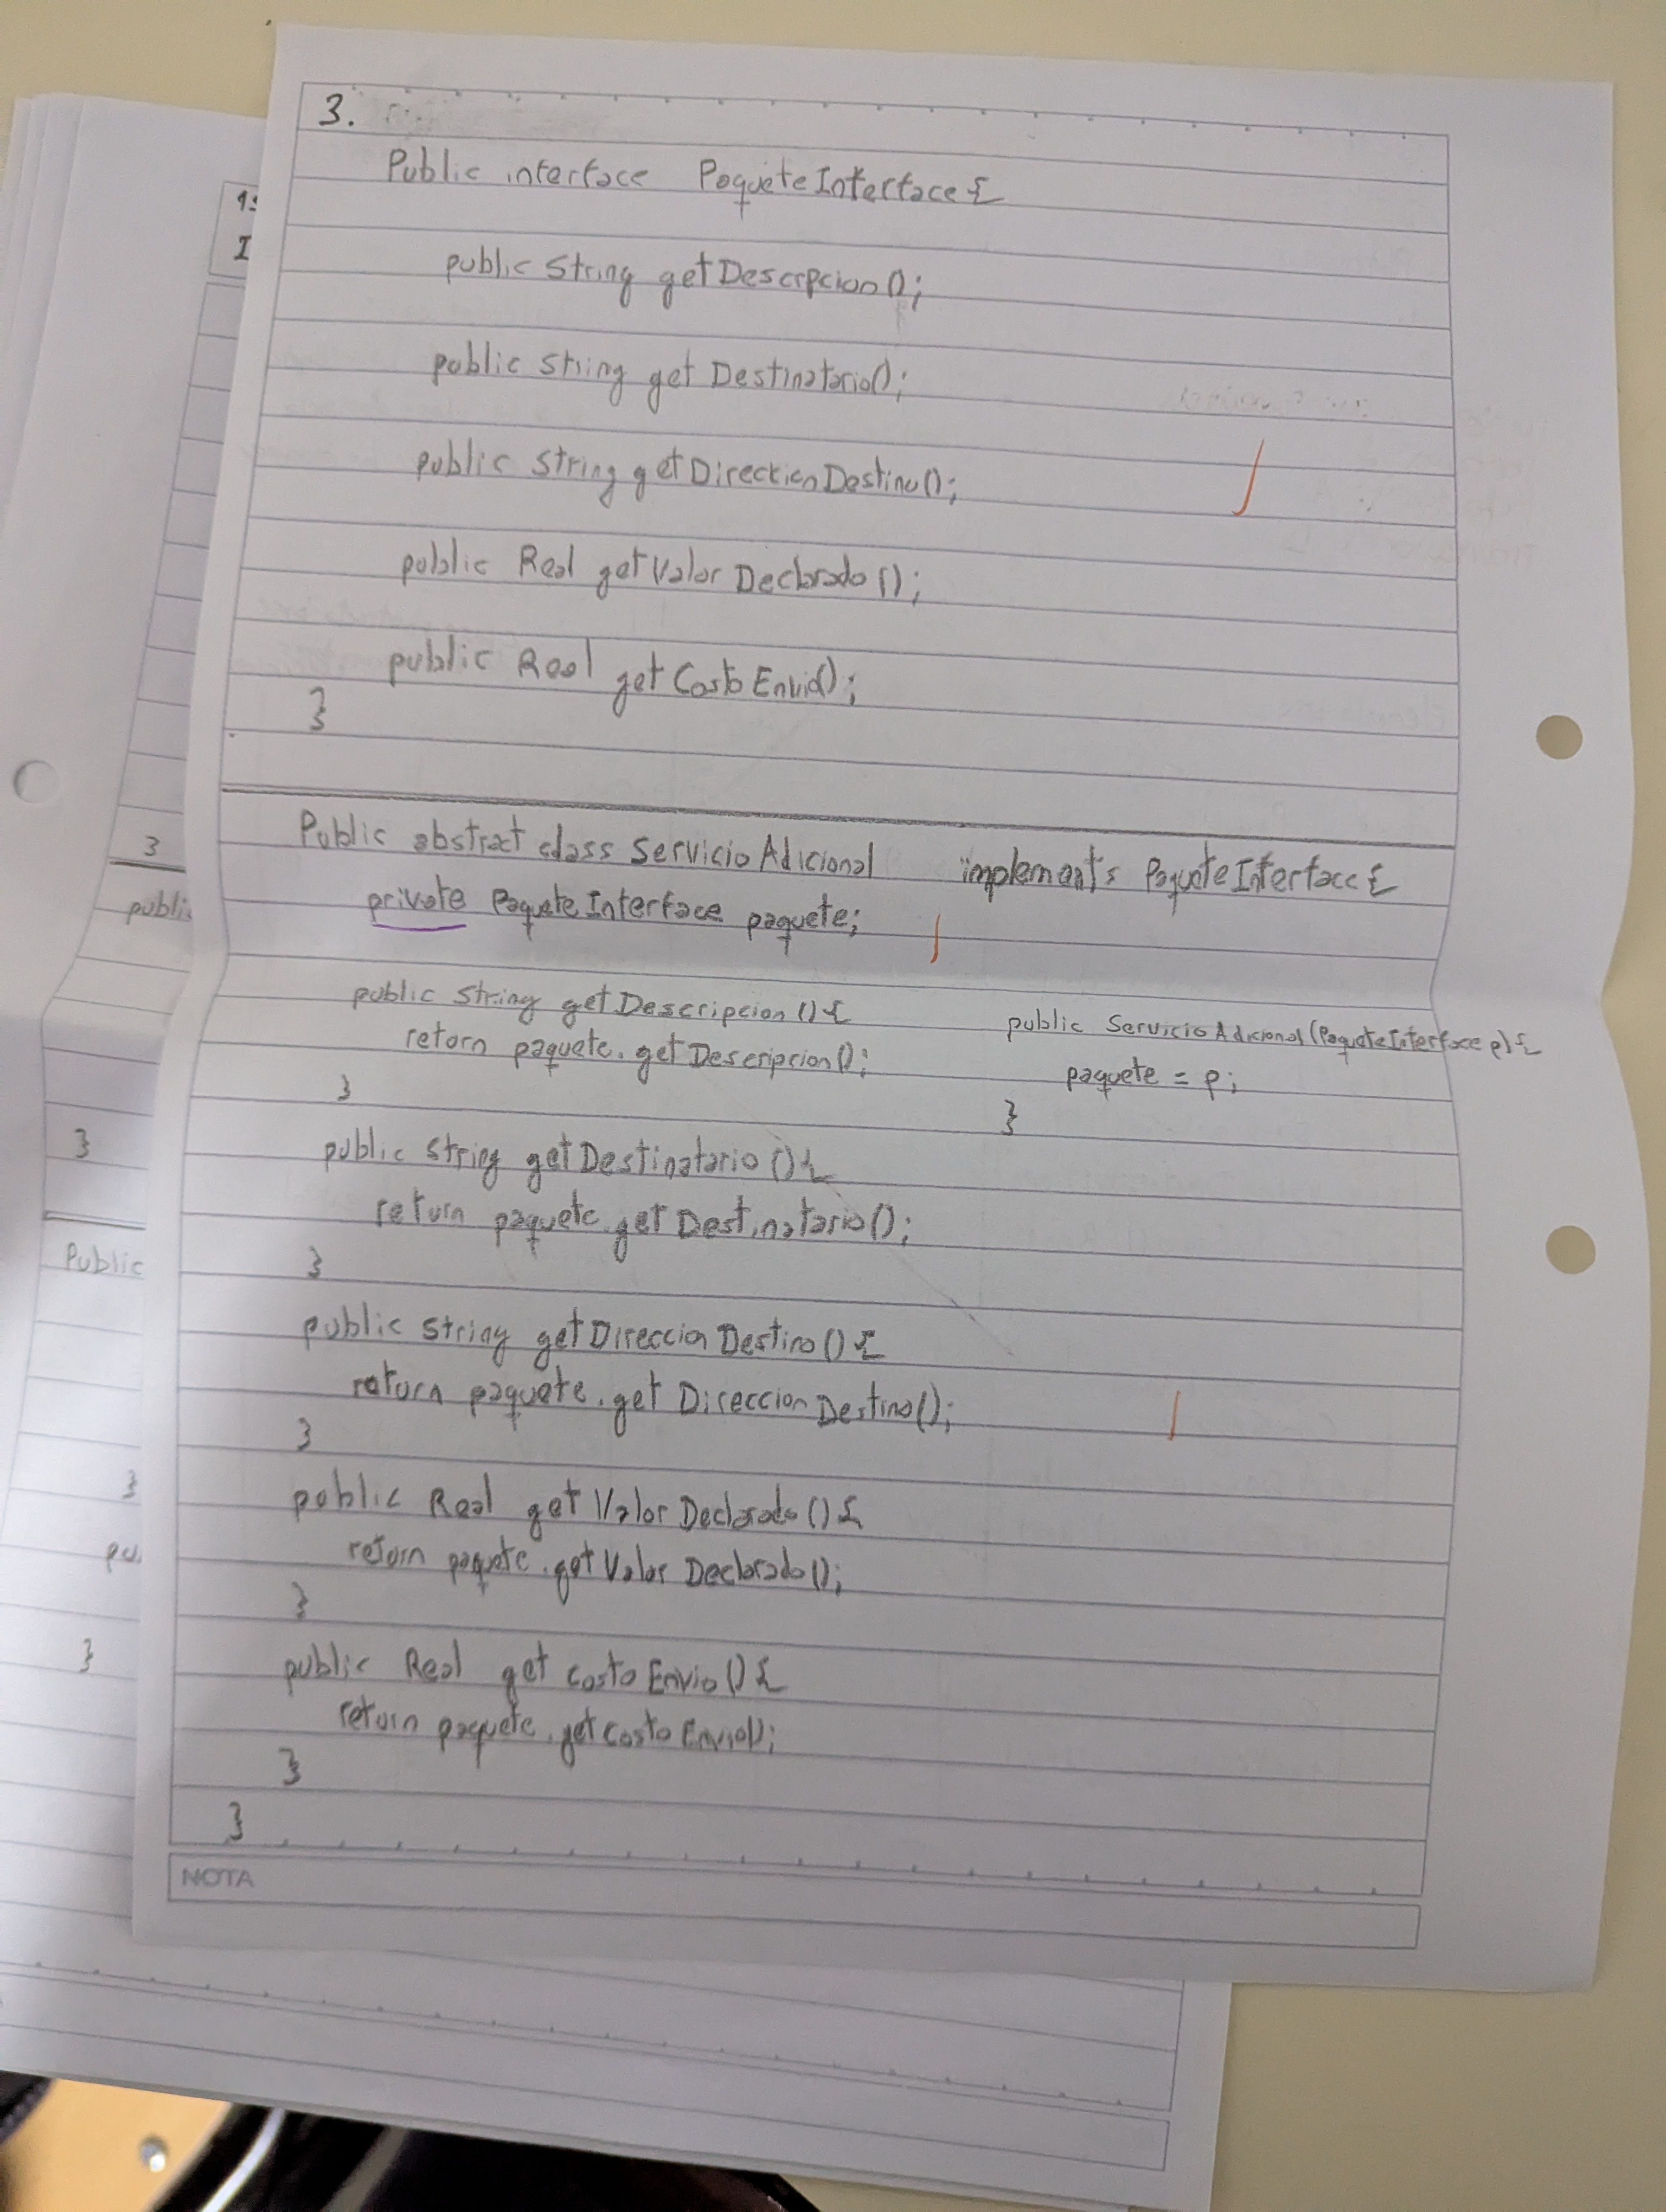 3.
Public interface PaqueteInterface {
public String getDescrpcion();
public String getDestinatario();
public String getDireccionDestino();
public Real getValorDeclarado();
public Real getCostoEnvio();
}
Public abstract class ServicioAdicional implements PaqueteInterface {
private PaqueteInterface paquete;
public String getDescripcion() {
return paquete.getDescripcion();
}
public ServicioAdicional(PaqueteInterface p) {
paquete = p;
}
public String getDestinatario() {
return paquete.getDestinatario();
}
public String getDireccionDestino() {
return paquete.getDireccionDestino();
}
public Real getValorDeclarado() {
return paquete.getValorDeclarado();
}
public Real getCostoEnvio() {
return paquete.getCostoEnvio();
}
}
NOTA
I
3
public
}
Public
}
pu
}